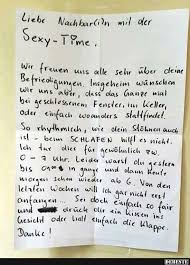 Liebe Nachbar(i)n mit der
Sexy-Time.
Wir freuen uns alle sehr über deine
Befriedigungen. Insgeheim wünschen
wir uns aber, dass das Ganze mal
bei geschlossenem Fenster, im Keller,
oder einfach woanders stattfindet.
So rhythmisch, wie dein Stöhnen auch
ist - beim SCHLAFEN hilft es nicht.
Ich tue dies für gewöhnlich zw.
0 - 7 Uhr. Leider warst du gestern
bis in gange und dann heute
morgen schon wieder ab 6. Von den
letzten Wochen will ich gar nicht erst
anfangen... Sei doch einfach so fair
und drück dir ein Kissen ins
Gesicht oder halt einfach die Klappe.
Danke!
DEBESTE